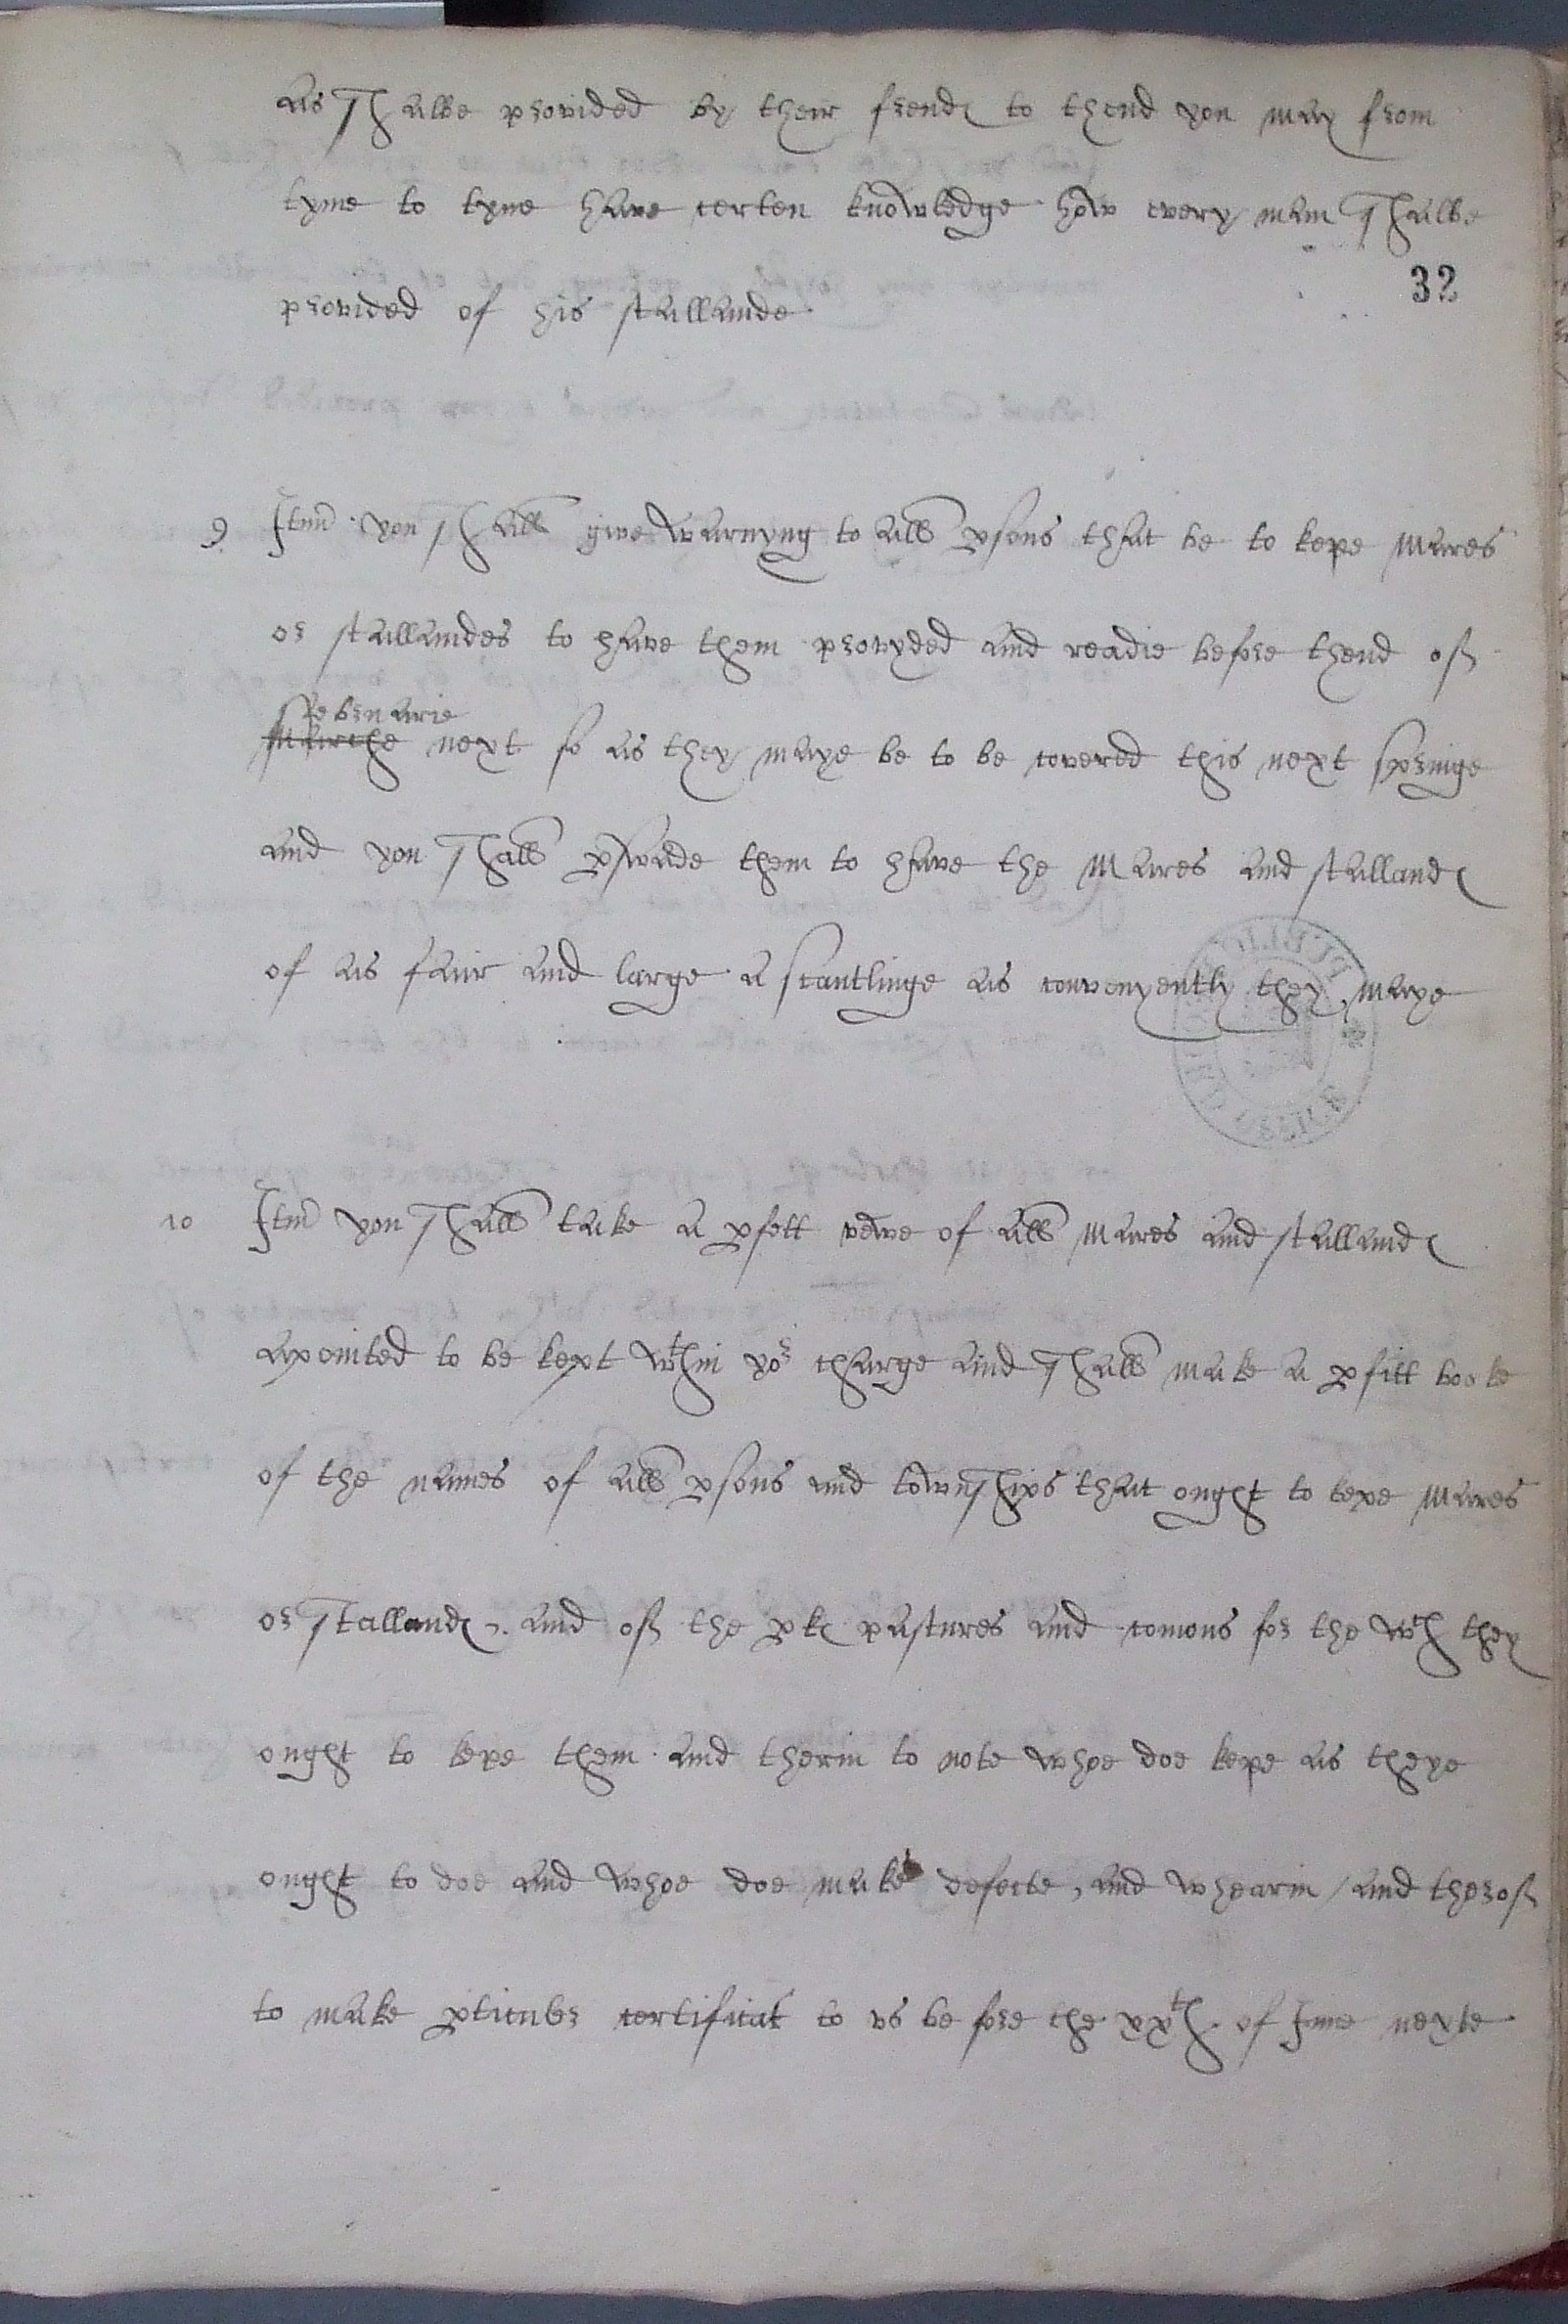 as shalbe provided by their frend to thend you may from
tyme to tyme have certen knowledge how every man shalbe
32
provided of his stallande
9. Itm you shall give warnyng to all psons that be to kepe mares
or stallandes to have them provyded and readie before thend of
Februarie
Marche next so as they maye be to be covered this next springe
and you shall pswade them to have the mares and stalland
of as fair and large a scantlinge as convenyently they maye
10 Itm you shall take a pfett vewe of all mares and stalland
apointed to be kept wthin yor charge and shall make a pfitt booke
of the names of all psons and townships that ought to kepe mares
or stalland. and of the pk pastures and comons for the wch they
ought to kepe them and therin to note whoe doe kepe as theye
ought to doe and whoe doe make defecte, and whearin / and therof
to make pticuler certificat to vs before the xxth of June nexte